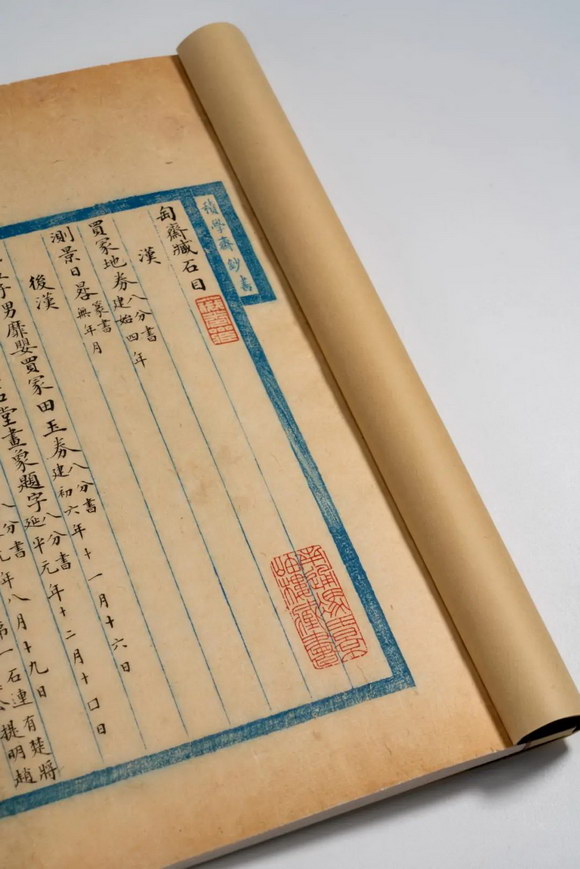 積學齋鈔書
匋齋臧石目
漢
買冢地券 八分書 建始四年
測景日晷 篆書 無年月
後漢
子男靡嬰買冢田玉券 八分書 建初六年十一月十六日
堂畫象題字 八分書 延平元年十二月十囗日
八分書
年八月十九日
第一石連有楚將
提明趙
南通馮氏景
岫樓藏書